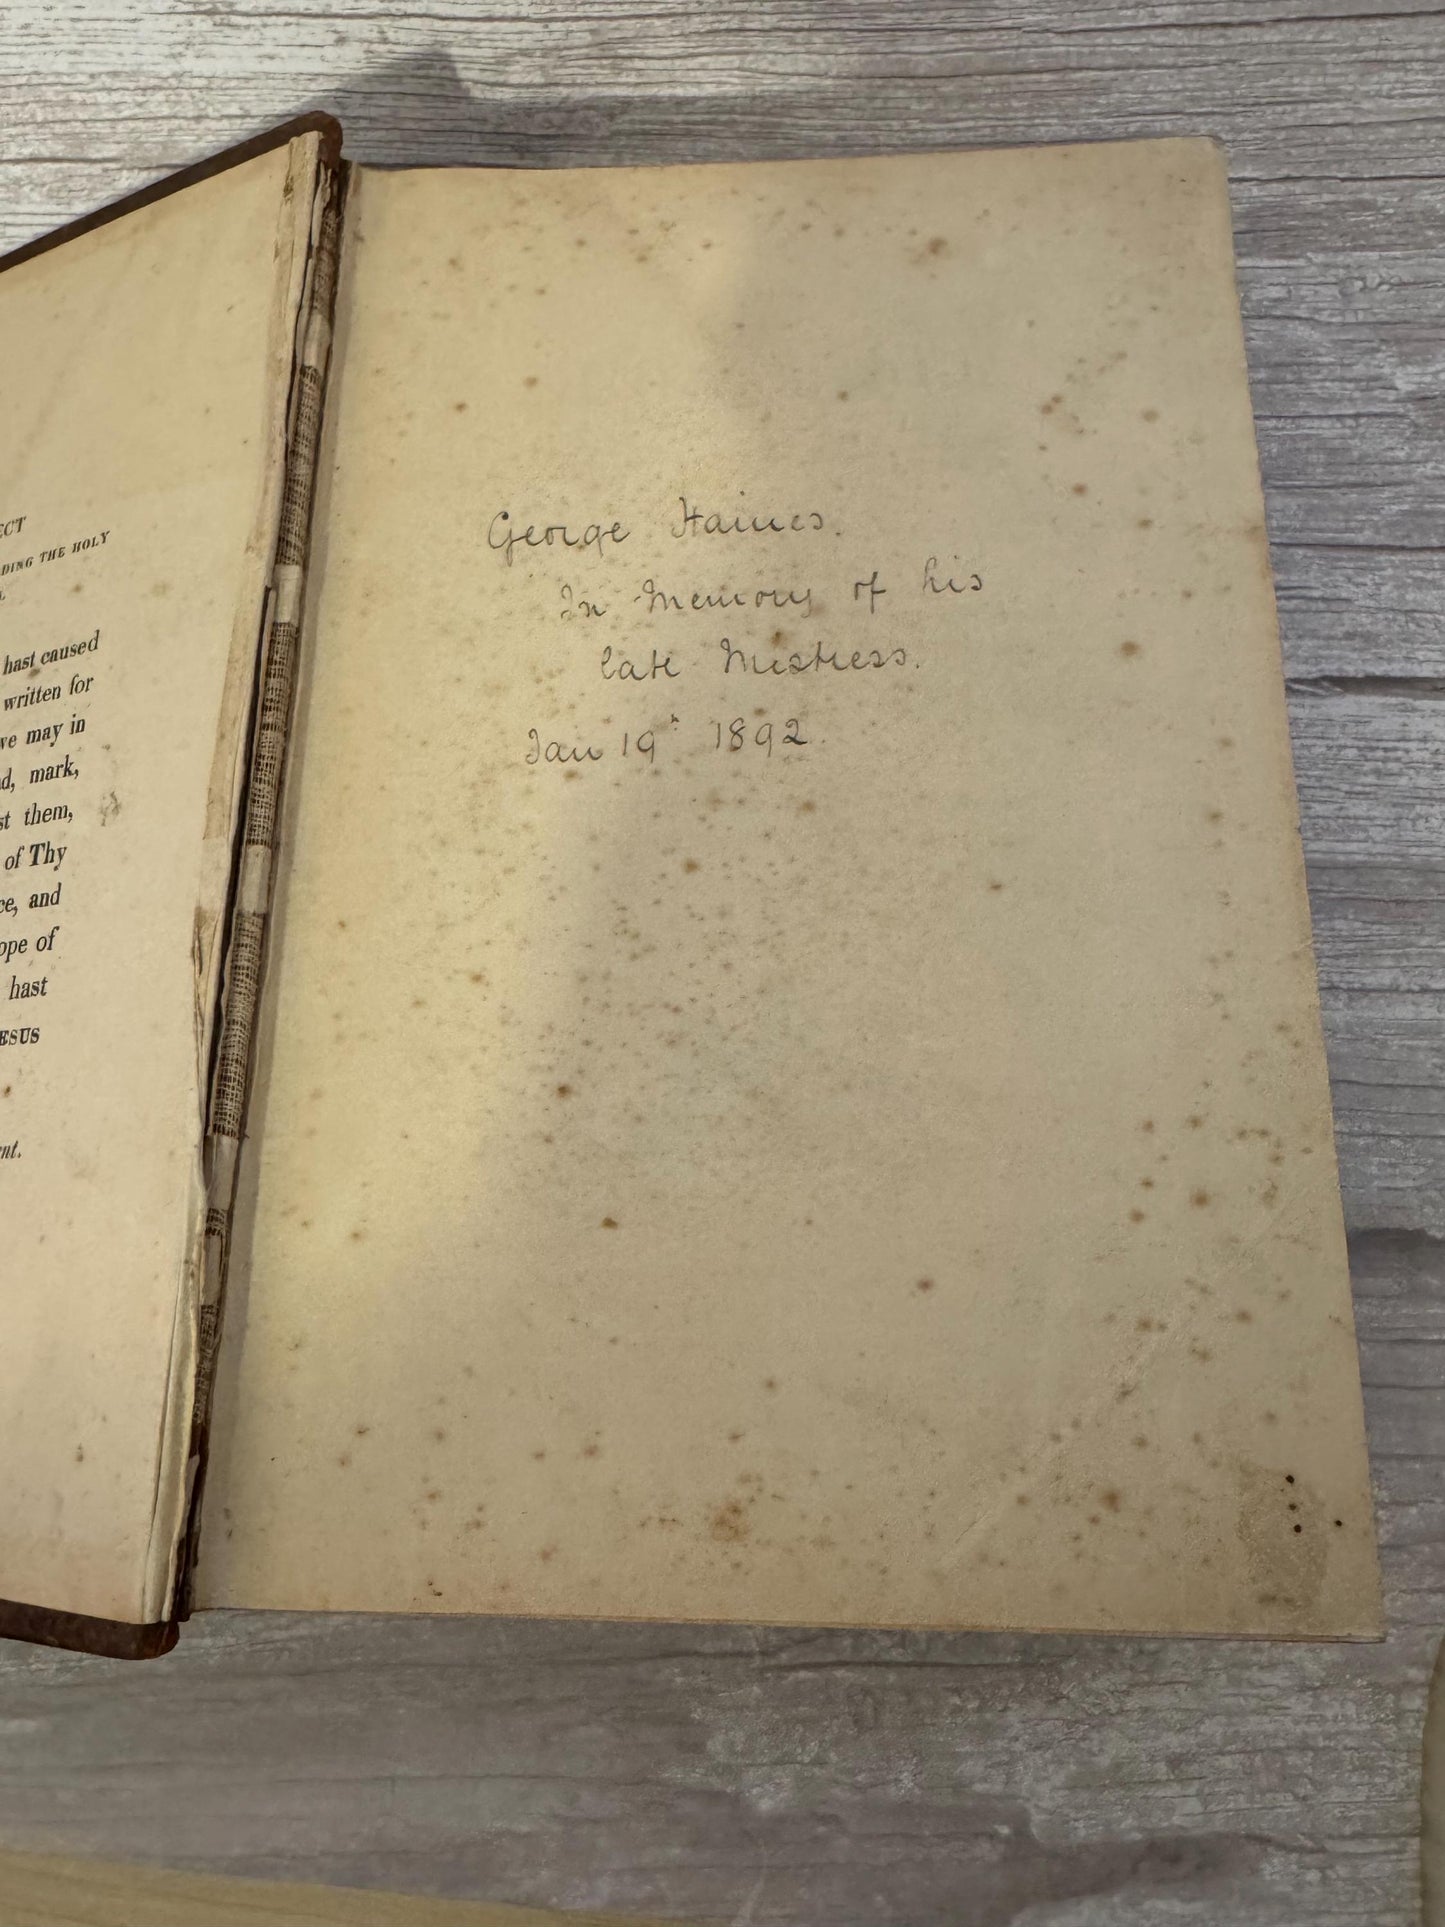 ECT
DING THE HOLY
hast caused
written for
we may in
d, mark,
st them,
of Thy
ce, and
ope of
hast
ESUS
nt.
George Haines.
In Memory of his
late Mistress.
Jan 19th 1892.